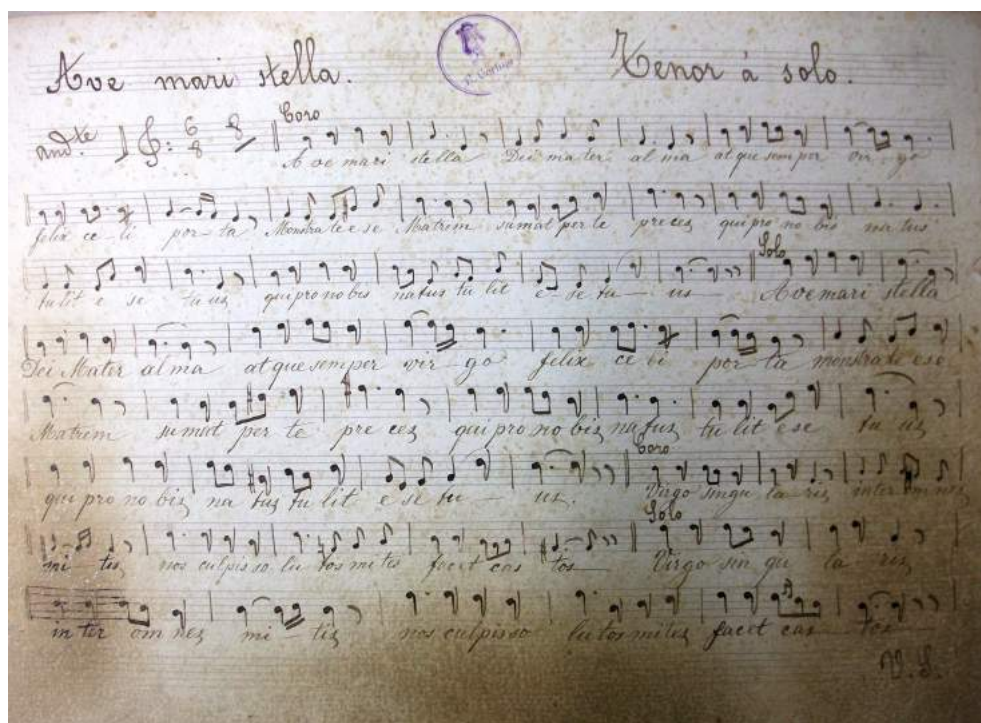 Ave mari stella. Tenor à solo.
And.te 6 8 8 Coro
A ve mari stella Dei ma ter al ma at que sem per vir - go
felix ce - li por - ta Monstra te e se Matrem sumat per te pre cez qui pro no bis na tus
tu lit e se tu uz qui pro no bis na tus tu lit e - se tu - us Solo A ve mari stella
Dei Mater al ma at que semper vir - go felix ce li por - ta monstra te ese
Matrem sumat per te pre cez qui pro no biz na tuz tu lit e se tu uz
qui pro no biz na tuz tu lit e se tu - uz. Coro Virgo singu la riz inter om nez
mi tiz nos culpis so lu tos mi tes facet cas tos Solo Virgo sin gu la riz
in ter om nez mi - tiz nos culpis so lu tos mitez facet cas - tos
V.S.